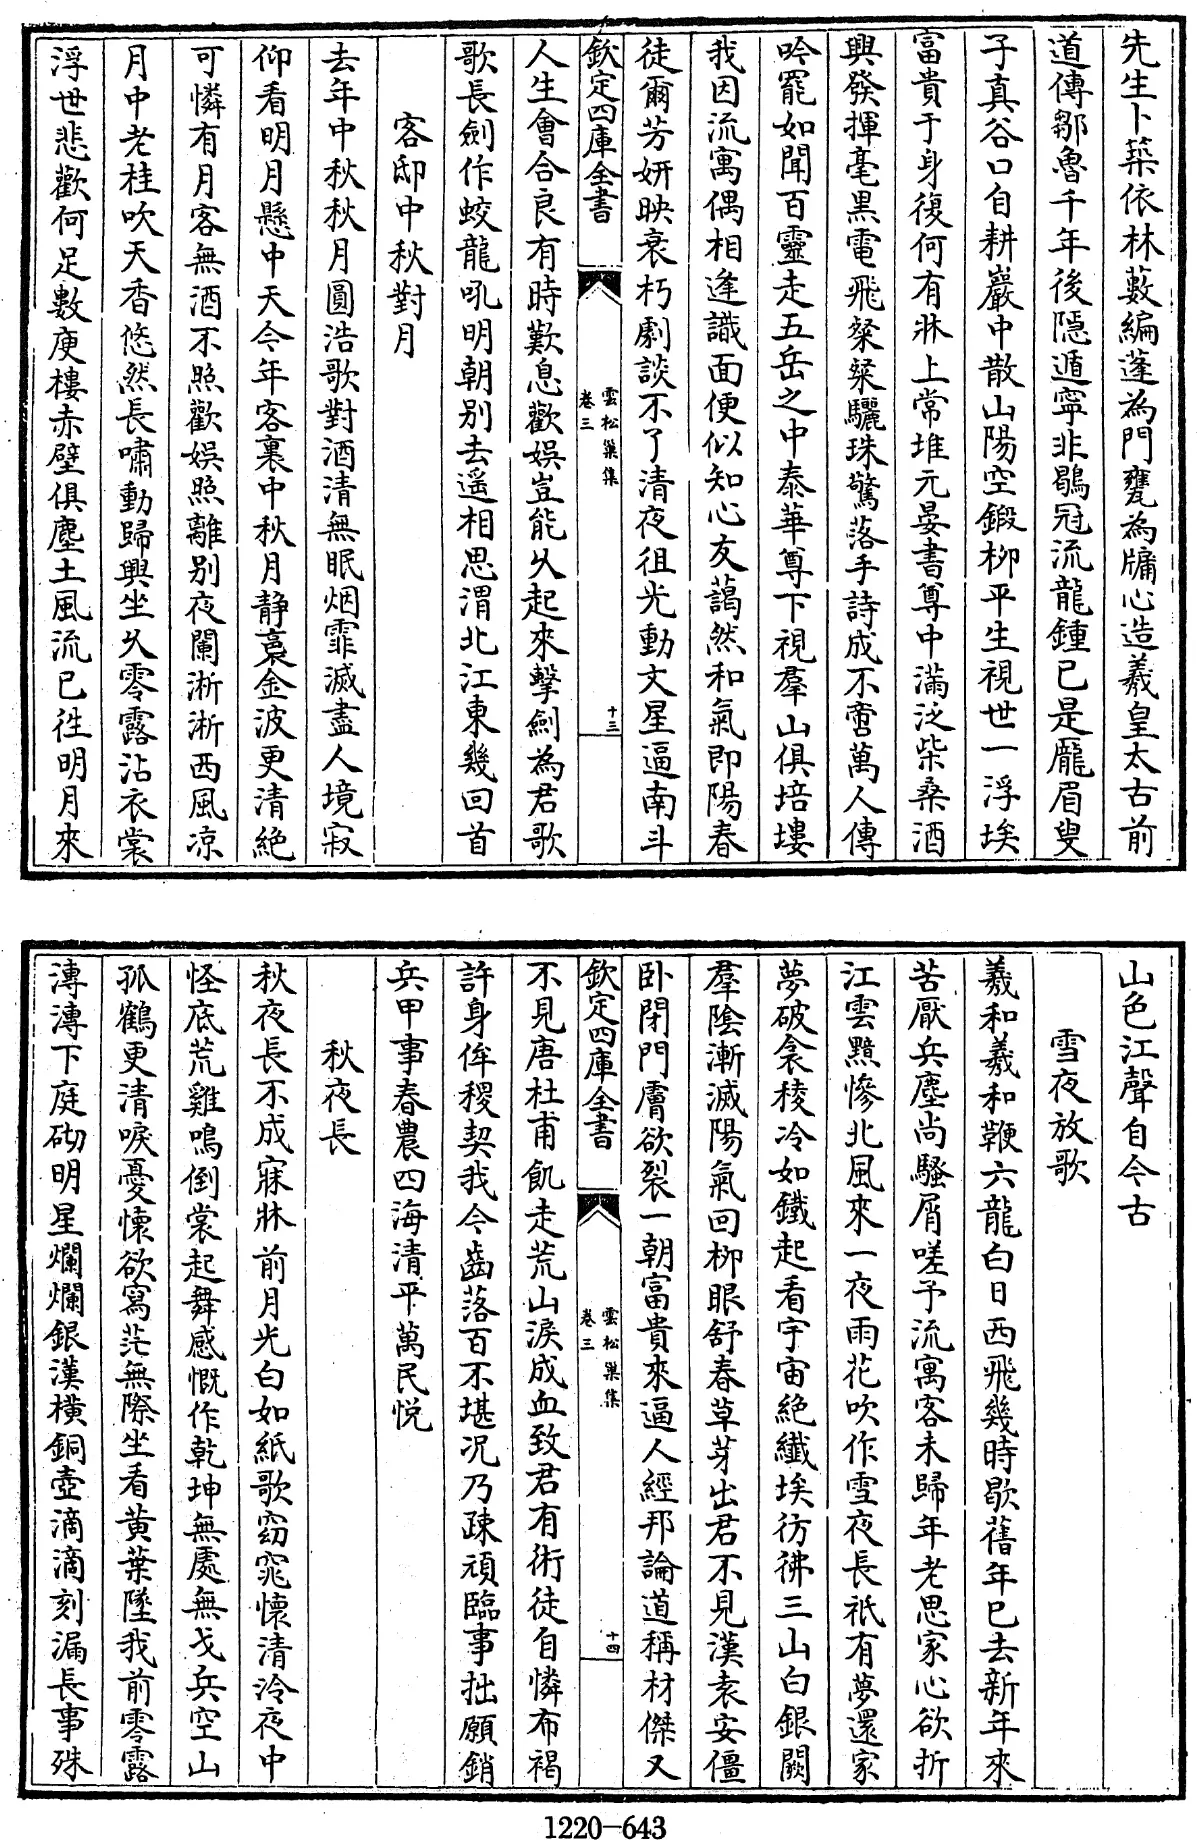 先生卜築依林藪編蓬為門甕為牖心造羲皇太古前
道傳鄒魯千年後隱遁寧非鶡冠流龍鍾已是龎眉叟
子真谷口自耕巖中散山陽空鍜柳平生視世一浮埃
富貴于身復何有牀上常堆元晏書尊中滿泛柴桑酒
興發揮毫黑電飛粲粲驪珠驚落手詩成不啻萬人傳
吟罷如聞百靈走五岳之中泰華尊下視羣山俱培塿
我因流寓偶相逢識面便似知心友藹然和氣即陽春
徒爾芳妍映衰朽劇談不了清夜徂光動文星逼南斗
欽定四庫全書
雲松巢集
卷三
十三
人生會合良有時歎息歡娛豈能久起來擊劍為君歌
歌長劍作蛟龍吼明朝别去遥相思渭北江東幾回首
客邸中秋對月
去年中秋秋月圓浩歌對酒清無眠烟霏滅盡人境寂
仰看明月懸中天今年客裏中秋月静裏金波更清絶
可憐有月客無酒不照歡娛照離别夜闌淅淅西風凉
月中老桂吹天香悠然長嘯動歸興坐久零露沾衣裳
浮世悲歡何足數庾樓赤壁俱塵土風流已往明月來
山色江聲自今古
雪夜放歌
羲和羲和鞭六龍白日西飛幾時歇舊年已去新年來
苦厭兵塵尚騷屑嗟予流寓客未歸年老思家心欲折
江雲黯慘北風來一夜雨花吹作雪夜長祇有夢還家
夢破衾稜冷如鐵起看宇宙絶纖埃彷彿三山白銀闕
羣陰漸滅陽氣回柳眼舒春草芽出君不見漢袁安僵
卧閉門膚欲裂一朝富貴來逼人經邦論道稱材傑又
欽定四庫全書
雲松巢集
卷三
十四
不見唐杜甫飢走荒山淚成血致君有術徒自憐布褐
許身侔稷契我今齒落百不堪况乃疎頑臨事拙願銷
兵甲事春農四海清平萬民悦
秋夜長
秋夜長不成寐牀前月光白如紙歌窈窕懷清泠夜中
怪底荒雞鳴倒裳起舞感慨作乾坤無處無戈兵空山
孤鶴更清唳憂懷欲寫茫無際坐看黄葉墜我前零露
漙漙下庭砌明星爛爛銀漢横銅壺滴滴刻漏長事殊
1220-643